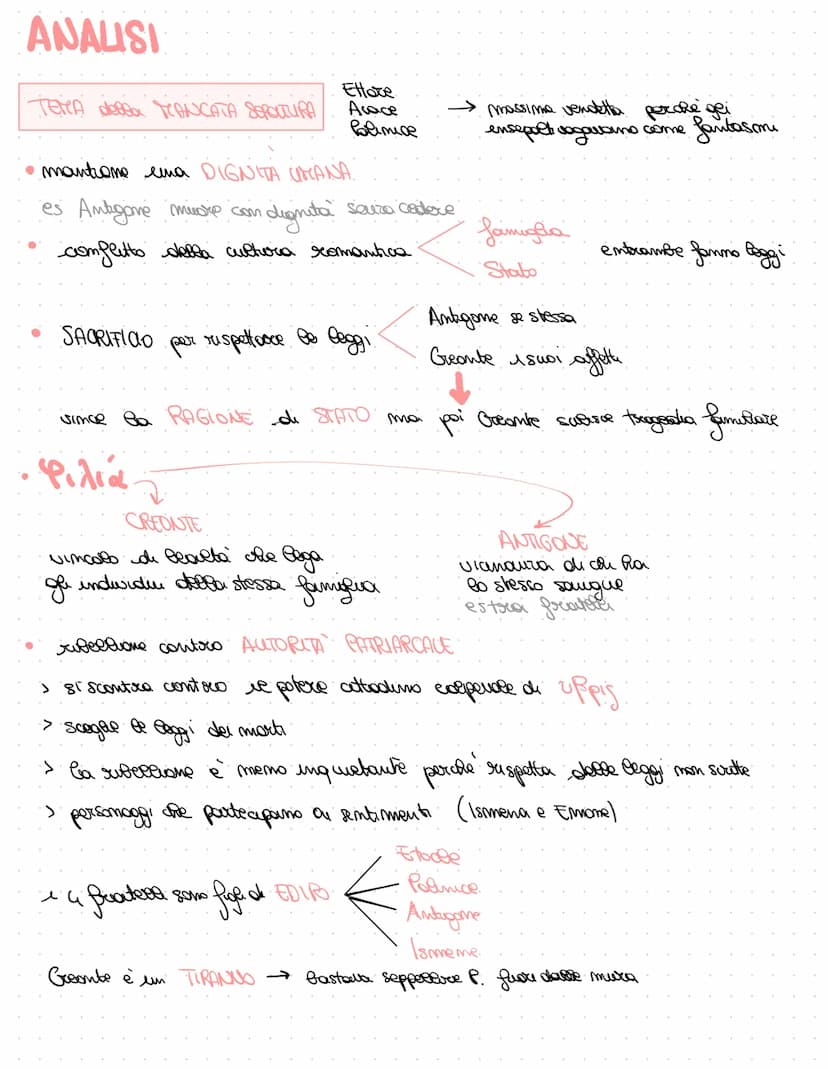 ANALISI
TEMA della MANCATA SEPOLTURA
Ettore
Aiace
Polinice
→ massima vendetta perché gli
insepolti vagavano come fantasmi
• mantiene una DIGNITÀ UMANA
es Antigone muore con dignità senza cedere
• conflitto della cultura romantica
famiglia
Stato
entrambe fanno leggi
• SACRIFICIO per rispettare le leggi
Antigone se stessa
Creonte i suoi affetti
vince la RAGIONE di STATO ma poi Creonte subisce tragedia familiare
• φιλιά
CREONTE
vincolo di lealtà che lega
gli individui della stessa famiglia
ANTIGONE
vicinanza di chi ha
lo stesso sangue
es tra fratelli
• ribellione contro AUTORITÀ PATRIARCALE
> si scontra contro il potere cittadino colpevole di υβρις
> sceglie le leggi dei morti
> la ribellione è meno inquietante perché rispetta delle leggi non scritte
> personaggi che partecipano ai sentimenti (Ismene e Emone)
i 4 fratelli sono figli di EDIPO
Eteocle
Polinice
Antigone
Ismene
Creonte è un TIRANNO → bastava seppellire P. fuori dalle mura